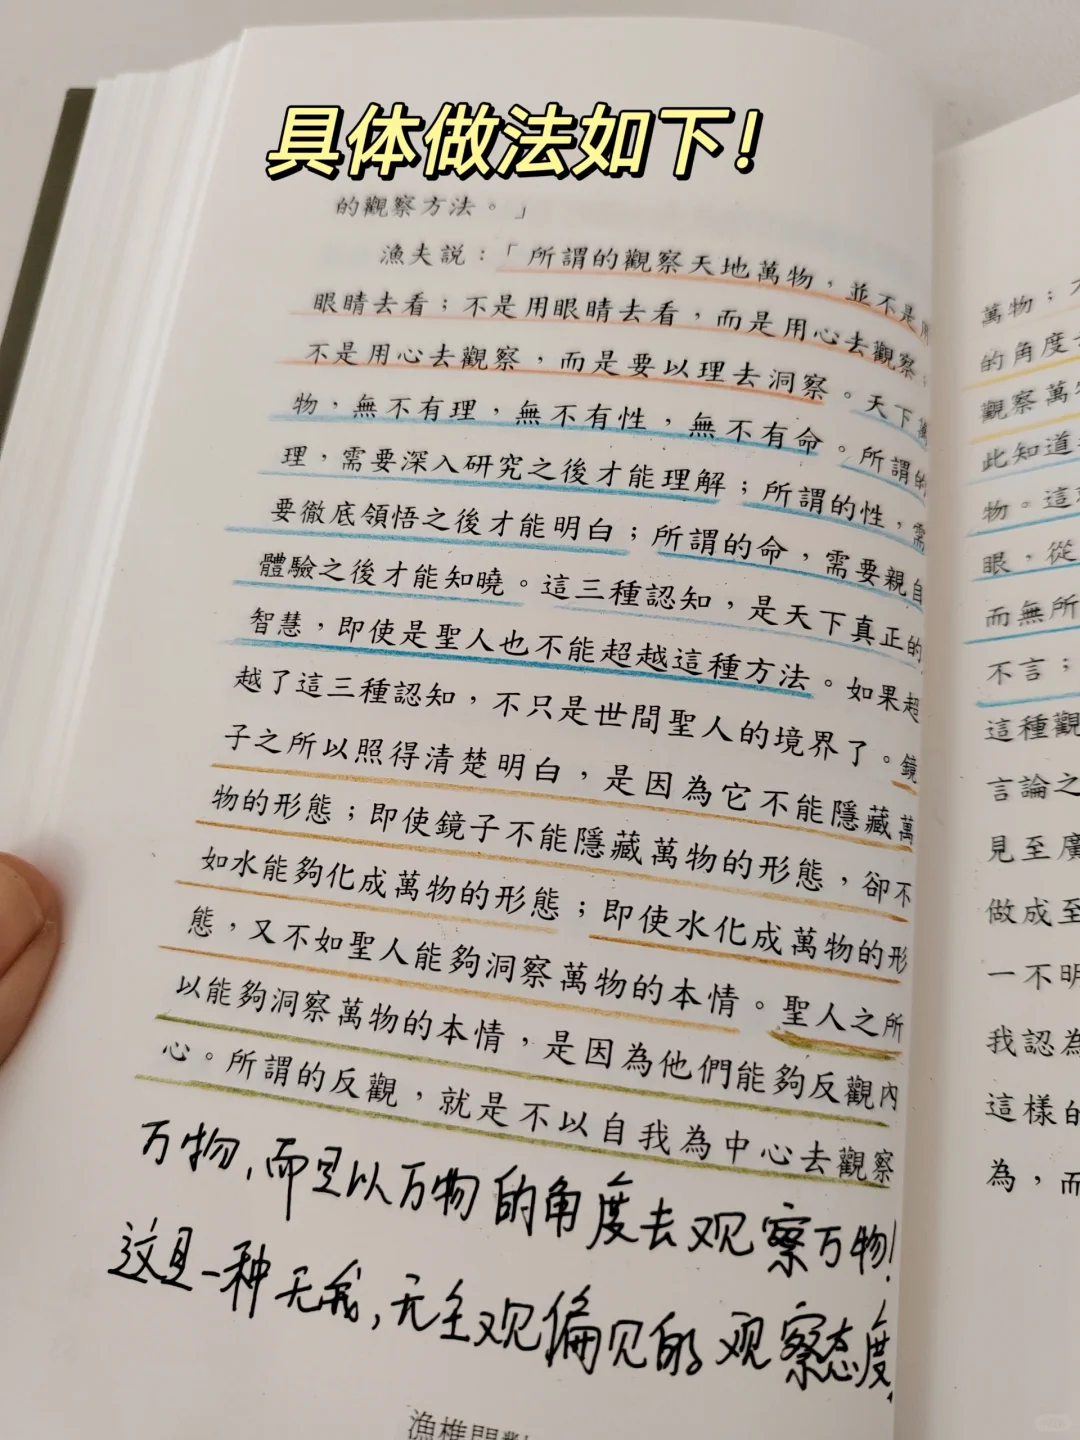 具体做法如下！
的觀察方法。」
漁夫説：「所謂的觀察天地萬物，並不是用
眼睛去看；不是用眼睛去看，而是用心去觀察；
不是用心去觀察，而是要以理去洞察。天下萬
物，無不有理，無不有性，無不有命。所謂的
理，需要深入研究之後才能理解；所謂的性，需
要徹底領悟之後才能明白；所謂的命，需要親自
體驗之後才能知曉。這三種認知，是天下真正的
智慧，即使是聖人也不能超越這種方法。如果超
越了這三種認知，不只是世間聖人的境界了。鏡
子之所以照得清楚明白，是因為它不能隱藏萬
物的形態；即使鏡子不能隱藏萬物的形態，卻不
如水能夠化成萬物的形態；即使水化成萬物的形
態，又不如聖人能夠洞察萬物的本情。聖人之所
以能夠洞察萬物的本情，是因為他們能夠反觀內
心。所謂的反觀，就是不以自我為中心去觀察
万物，而是以万物的角度去观察万物！
这是一种无我，无主观偏见的观察态度
漁樵問對
萬物；
的角度
觀察萬
此知道
物。這
眼，從
而無所
不言；
這種觀
言論之
見至廣
做成至
一不明
我認為
這樣的
為，而